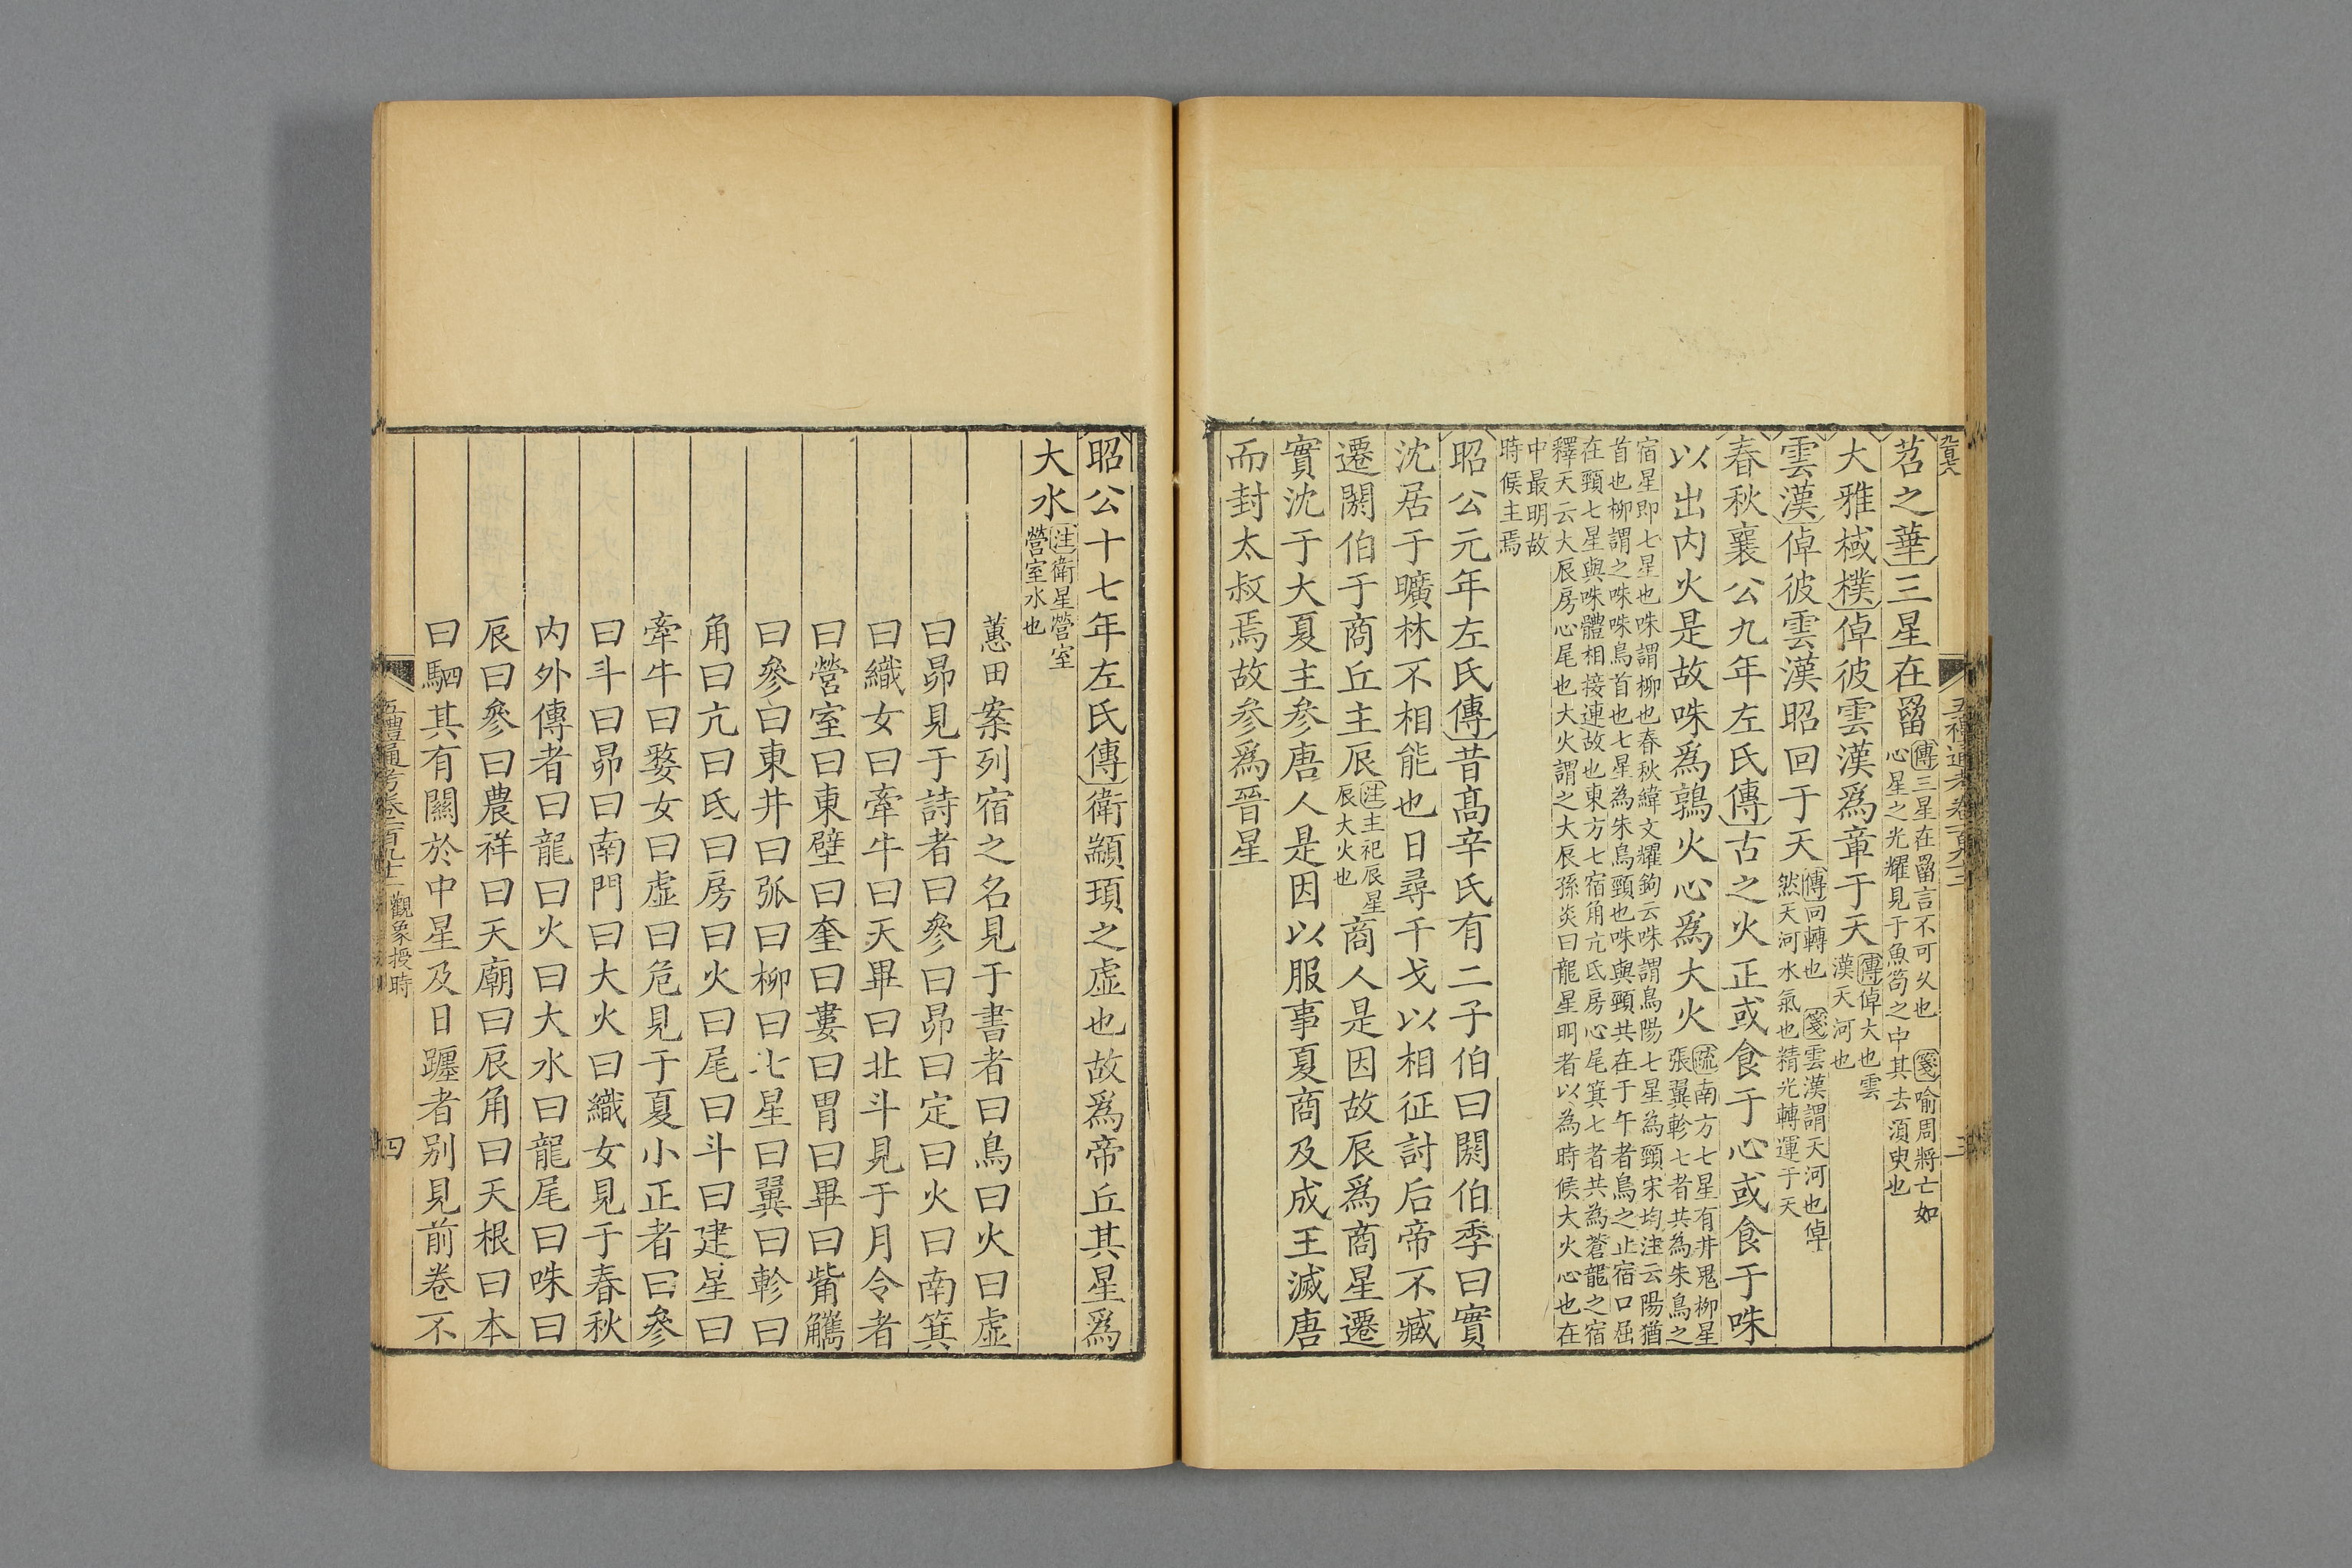 五禮通考卷一百九十二
三
苕之華三星在罶傳三星在罶言不可久也 箋喻周將亡如
心星之光耀見于魚笱之中其去須臾也
大雅棫樸倬彼雲漢爲章于天傳倬大也雲
漢天河也
雲漢倬彼雲漢昭回于天傳回轉也 箋雲漢謂天河也倬
然天河水氣也精光轉運于天
春秋襄公九年左氏傳古之火正或食于心或食于咮
以出内火是故咮爲鶉火心爲大火疏南方七星有井鬼柳星
張翼軫七者共為朱鳥之
宿星即七星也咮謂柳也春秋緯文耀鉤云咮謂鳥陽七星為頸宋均注云陽猶
首也柳謂之咮咮鳥首也七星為朱鳥頸也咮與頸共在于午者鳥之止宿口屈
在頸七星與咮體相接連故也東方七宿角亢氐房心尾箕七者共為蒼龍之宿
釋天云大辰房心尾也大火謂之大辰孫炎曰龍星明者以為時候大火心也在
中最明故
時候主焉
昭公元年左氏傳昔高辛氏有二子伯曰閼伯季曰實
沈居于曠林不相能也日尋干戈以相征討后帝不臧
遷閼伯于商丘主辰注主祀辰星
辰大火也商人是因故辰爲商星遷
實沈于大夏主参唐人是因以服事夏商及成王滅唐
而封太叔焉故参爲晉星
昭公十七年左氏傳衛顓頊之虛也故爲帝丘其星爲
大水注衛星營室
營室水也
蕙田案列宿之名見于書者曰鳥曰火曰虛
曰昴見于詩者曰參曰昴曰定曰火曰南箕
曰織女曰牽牛曰天畢曰北斗見于月令者
曰營室曰東壁曰奎曰婁曰胃曰畢曰觜觿
曰參曰東井曰弧曰柳曰七星曰翼曰軫曰
角曰亢曰氐曰房曰火曰尾曰斗曰建星曰
牽牛曰婺女曰虛曰危見于夏小正者曰參
曰斗曰昴曰南門曰大火曰織女見于春秋
内外傳者曰龍曰火曰大水曰龍尾曰咮曰
辰曰參曰農祥曰天廟曰辰角曰天根曰本
曰駟其有關於中星及日躔者别見前卷不
五禮通考卷一百九十二 觀象授時
四